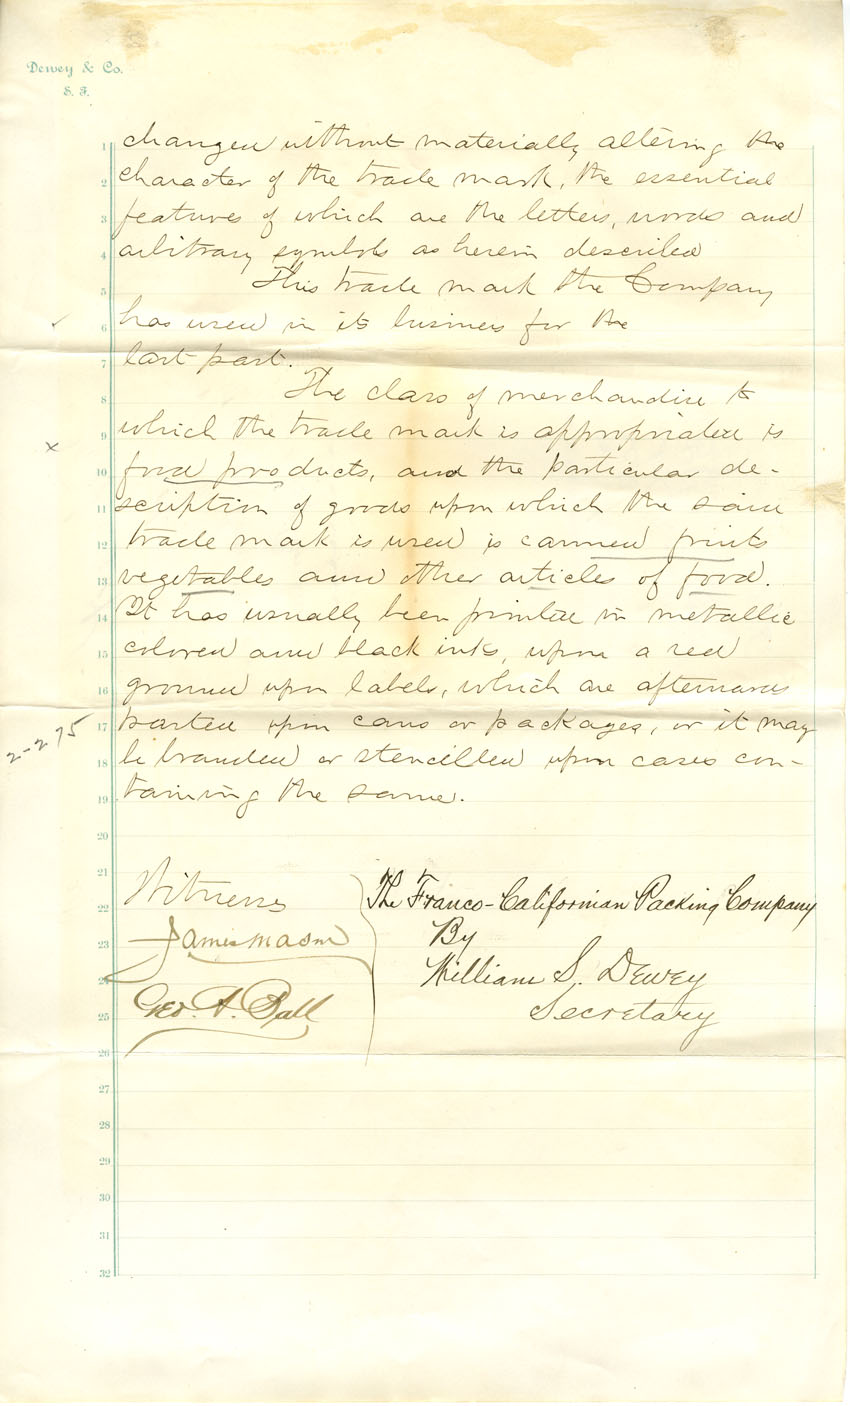 Dewey & Co.
S. F.
1 changed without materially altering the
2 character of the trade mark, the essential
3 features of which are the letters, words and
4 arbitrary symbols as herein described
5 This trade mark the Company
6 has used in its business for the
7 last past.
8 The class of merchandise to
9 which the trade mark is appropriated is
10 food products, and the particular de-
11 scription of goods upon which the said
12 trade mark is used is canned fruits
13 vegetables and other articles of food.
14 It has usually been printed in metallic
15 colored and black inks, upon a red
16 ground upon labels, which are afterwards
17 pasted upon cans or packages, or it may
18 be branded or stencilled upon cases con-
19 taining the same.
2-2 75
20
21
22 Witnesses
The Franco-Californian Packing Company
23 James Mason
By
24
William S. Dewey
25 Geo. A. Ball
Secretary
26
27
28
29
30
31
32